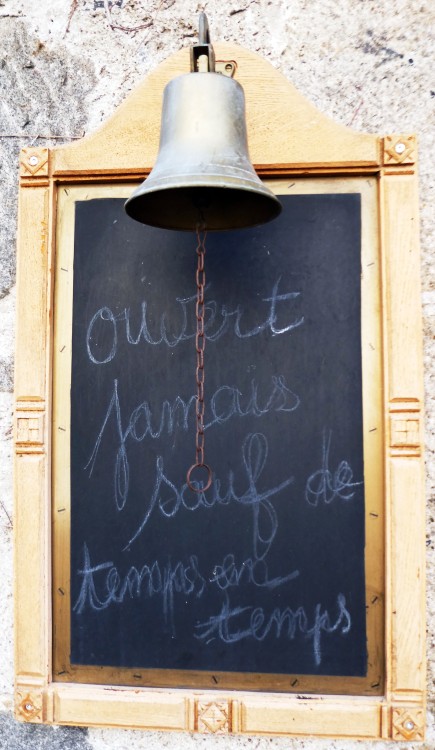 ouvert
jamais
sauf de
temps en
temps